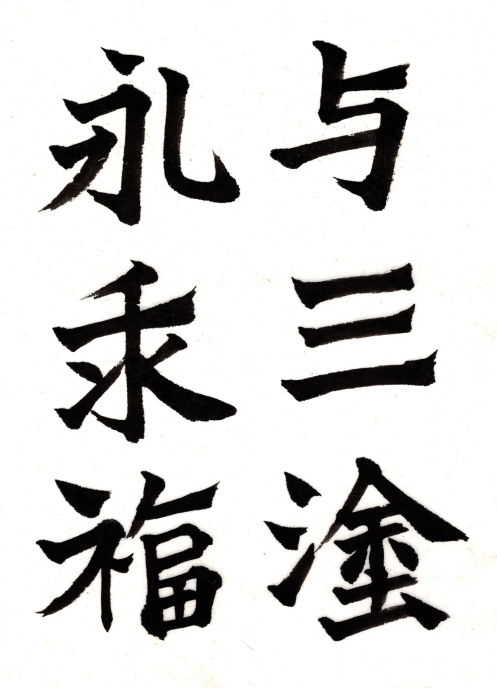 与三塗
永乖福